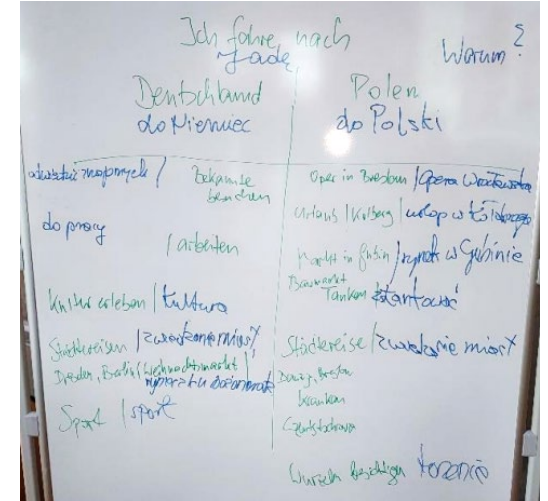 Ich fahre nach
Jadę
Warum?
Deutschland
do Niemiec
odwiedzić znajomych / Bekannte
besuchen
do pracy
/ arbeiten
Kultur erleben / kultura
Städtereisen / zwiedzanie miast
Dresden, Berlin / Weihnachtsmarkt /
Sport / sport
Polen
do Polski
Oper in Breslau / Opera Wrocławska
Urlaub / Kolberg / urlop w Kołobrzegu
Markt in Gubin / rynek w Gubinie
Baumarkt
Tanken
Städtereise / zwiedzanie miast
Danzig, Breslau
Wurzeln besichtigen korzenie